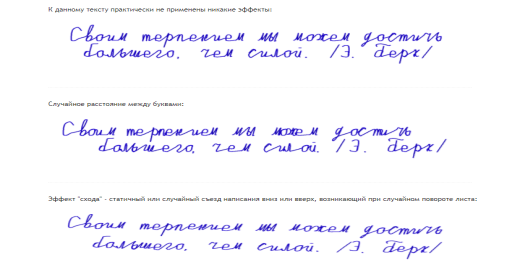 К данному тексту практически не применены никакие эффекты:
Своим терпением мы можем достичь
большего, чем силой. /Э. Берк/
Случайное расстояние между буквами:
Своим терпением мы можем достичь
большего, чем силой. /Э. Берк/
Эффект "схода" - статичный или случайный съезд написания вниз или вверх, возникающий при случайном повороте листа:
Своим терпением мы можем достичь
большего, чем силой. /Э. Берк/